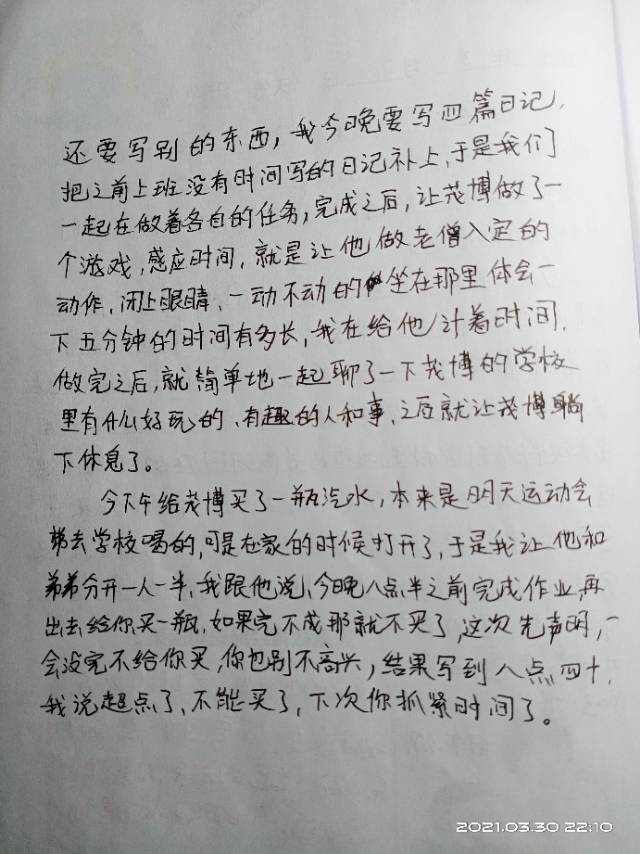 还要写别的东西，我今晚要写四篇日记，
把之前上班没有时间写的日记补上，于是我们
一起在做着各自的任务，完成之后，让茂博做了一
个游戏，感应时间，就是让他做老僧入定的
动作，闭上眼睛，一动不动的坐在那里体会一
下五分钟的时间有多长，我在给他计着时间，
做完之后，就简单地一起聊了一下茂博的学校
里有什么好玩的、有趣的人和事，之后就让茂博躺
下休息了。
今下午给茂博买了一瓶汽水，本来是明天运动会
带去学校喝的，可是在家的时候打开了，于是我让他和
弟弟分开一人一半，我跟他说，今晚八点半之前完成作业，再
出去给你买一瓶，如果完不成那就不买了，这次先声明，一
会没完不给你买，你也别不高兴，结果写到八点四十，
我说超点了，不能买了，下次你抓紧时间了。
2021.03.30 22:10